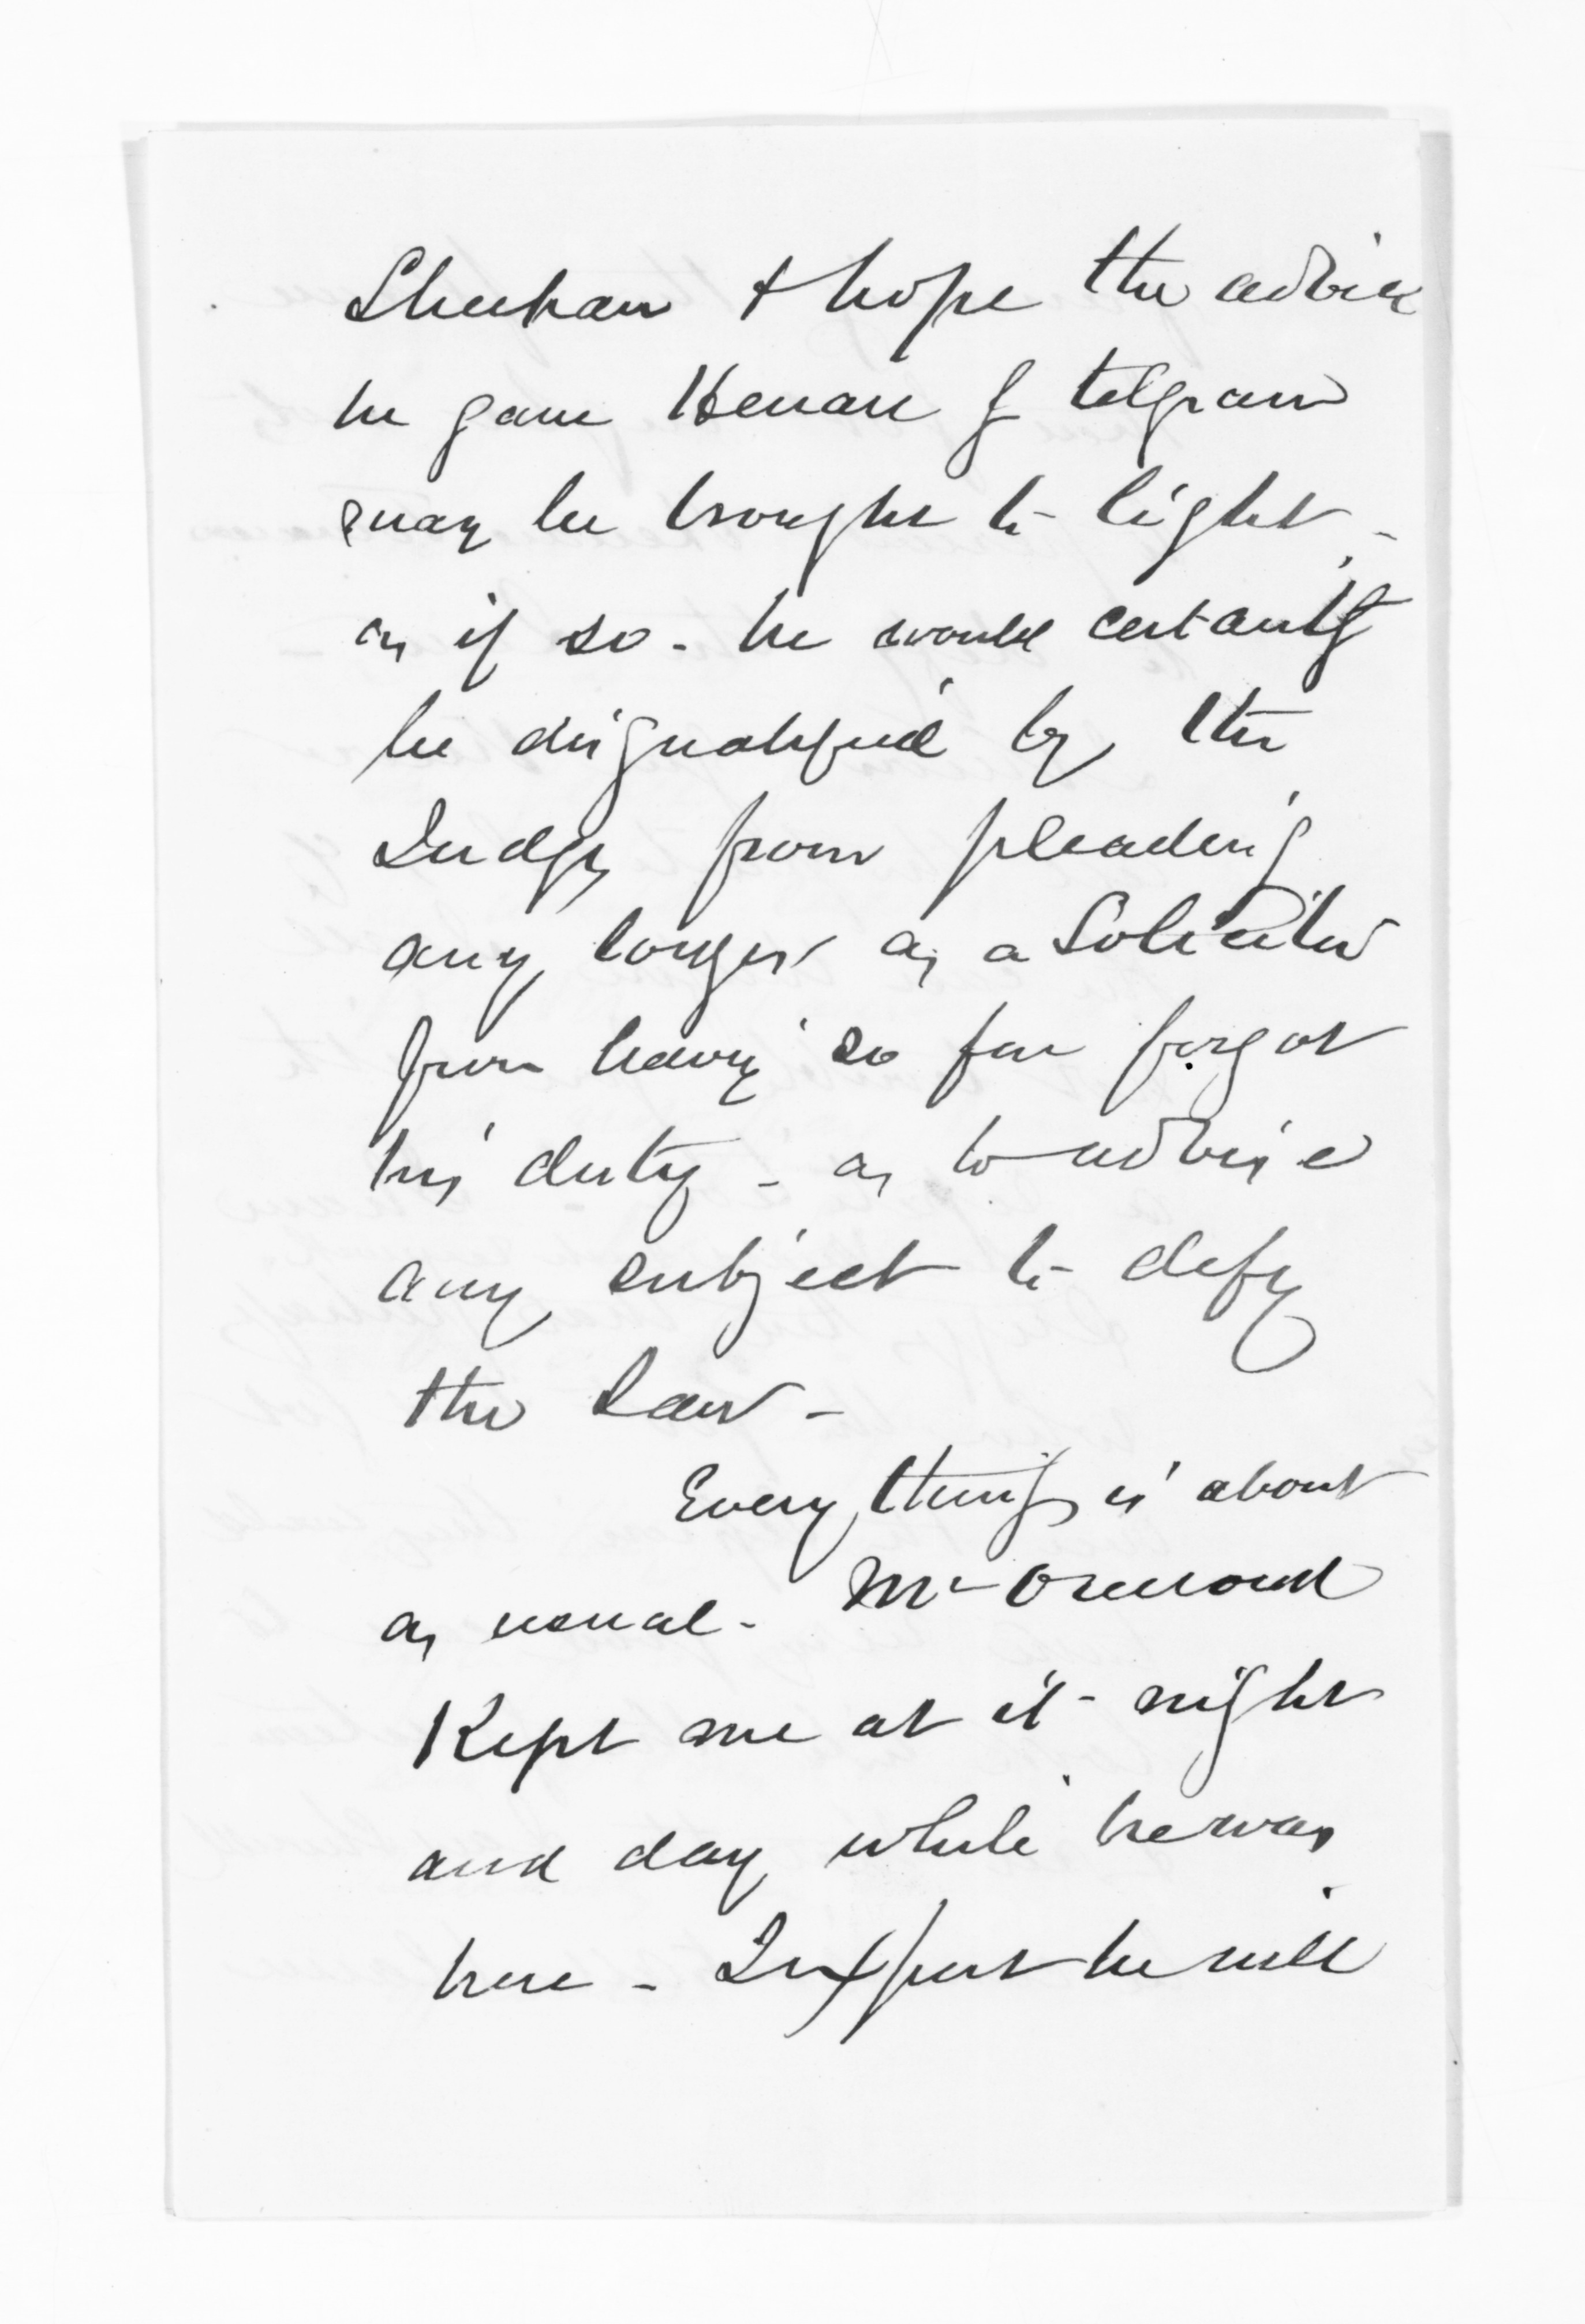 Sheehan & hope the advice
he gave Henare by telgram
may be brought to light -
as if so - he would certainly
be disqualified by the
Judge from pleading
any longer as a Solicitor
from having so far forgot
his duty - as to advise
any subject to defy
the Law -
Every thing is about
as usual - Mr Ormond
Kept me at it - night
and day while he was
here - I expect he will